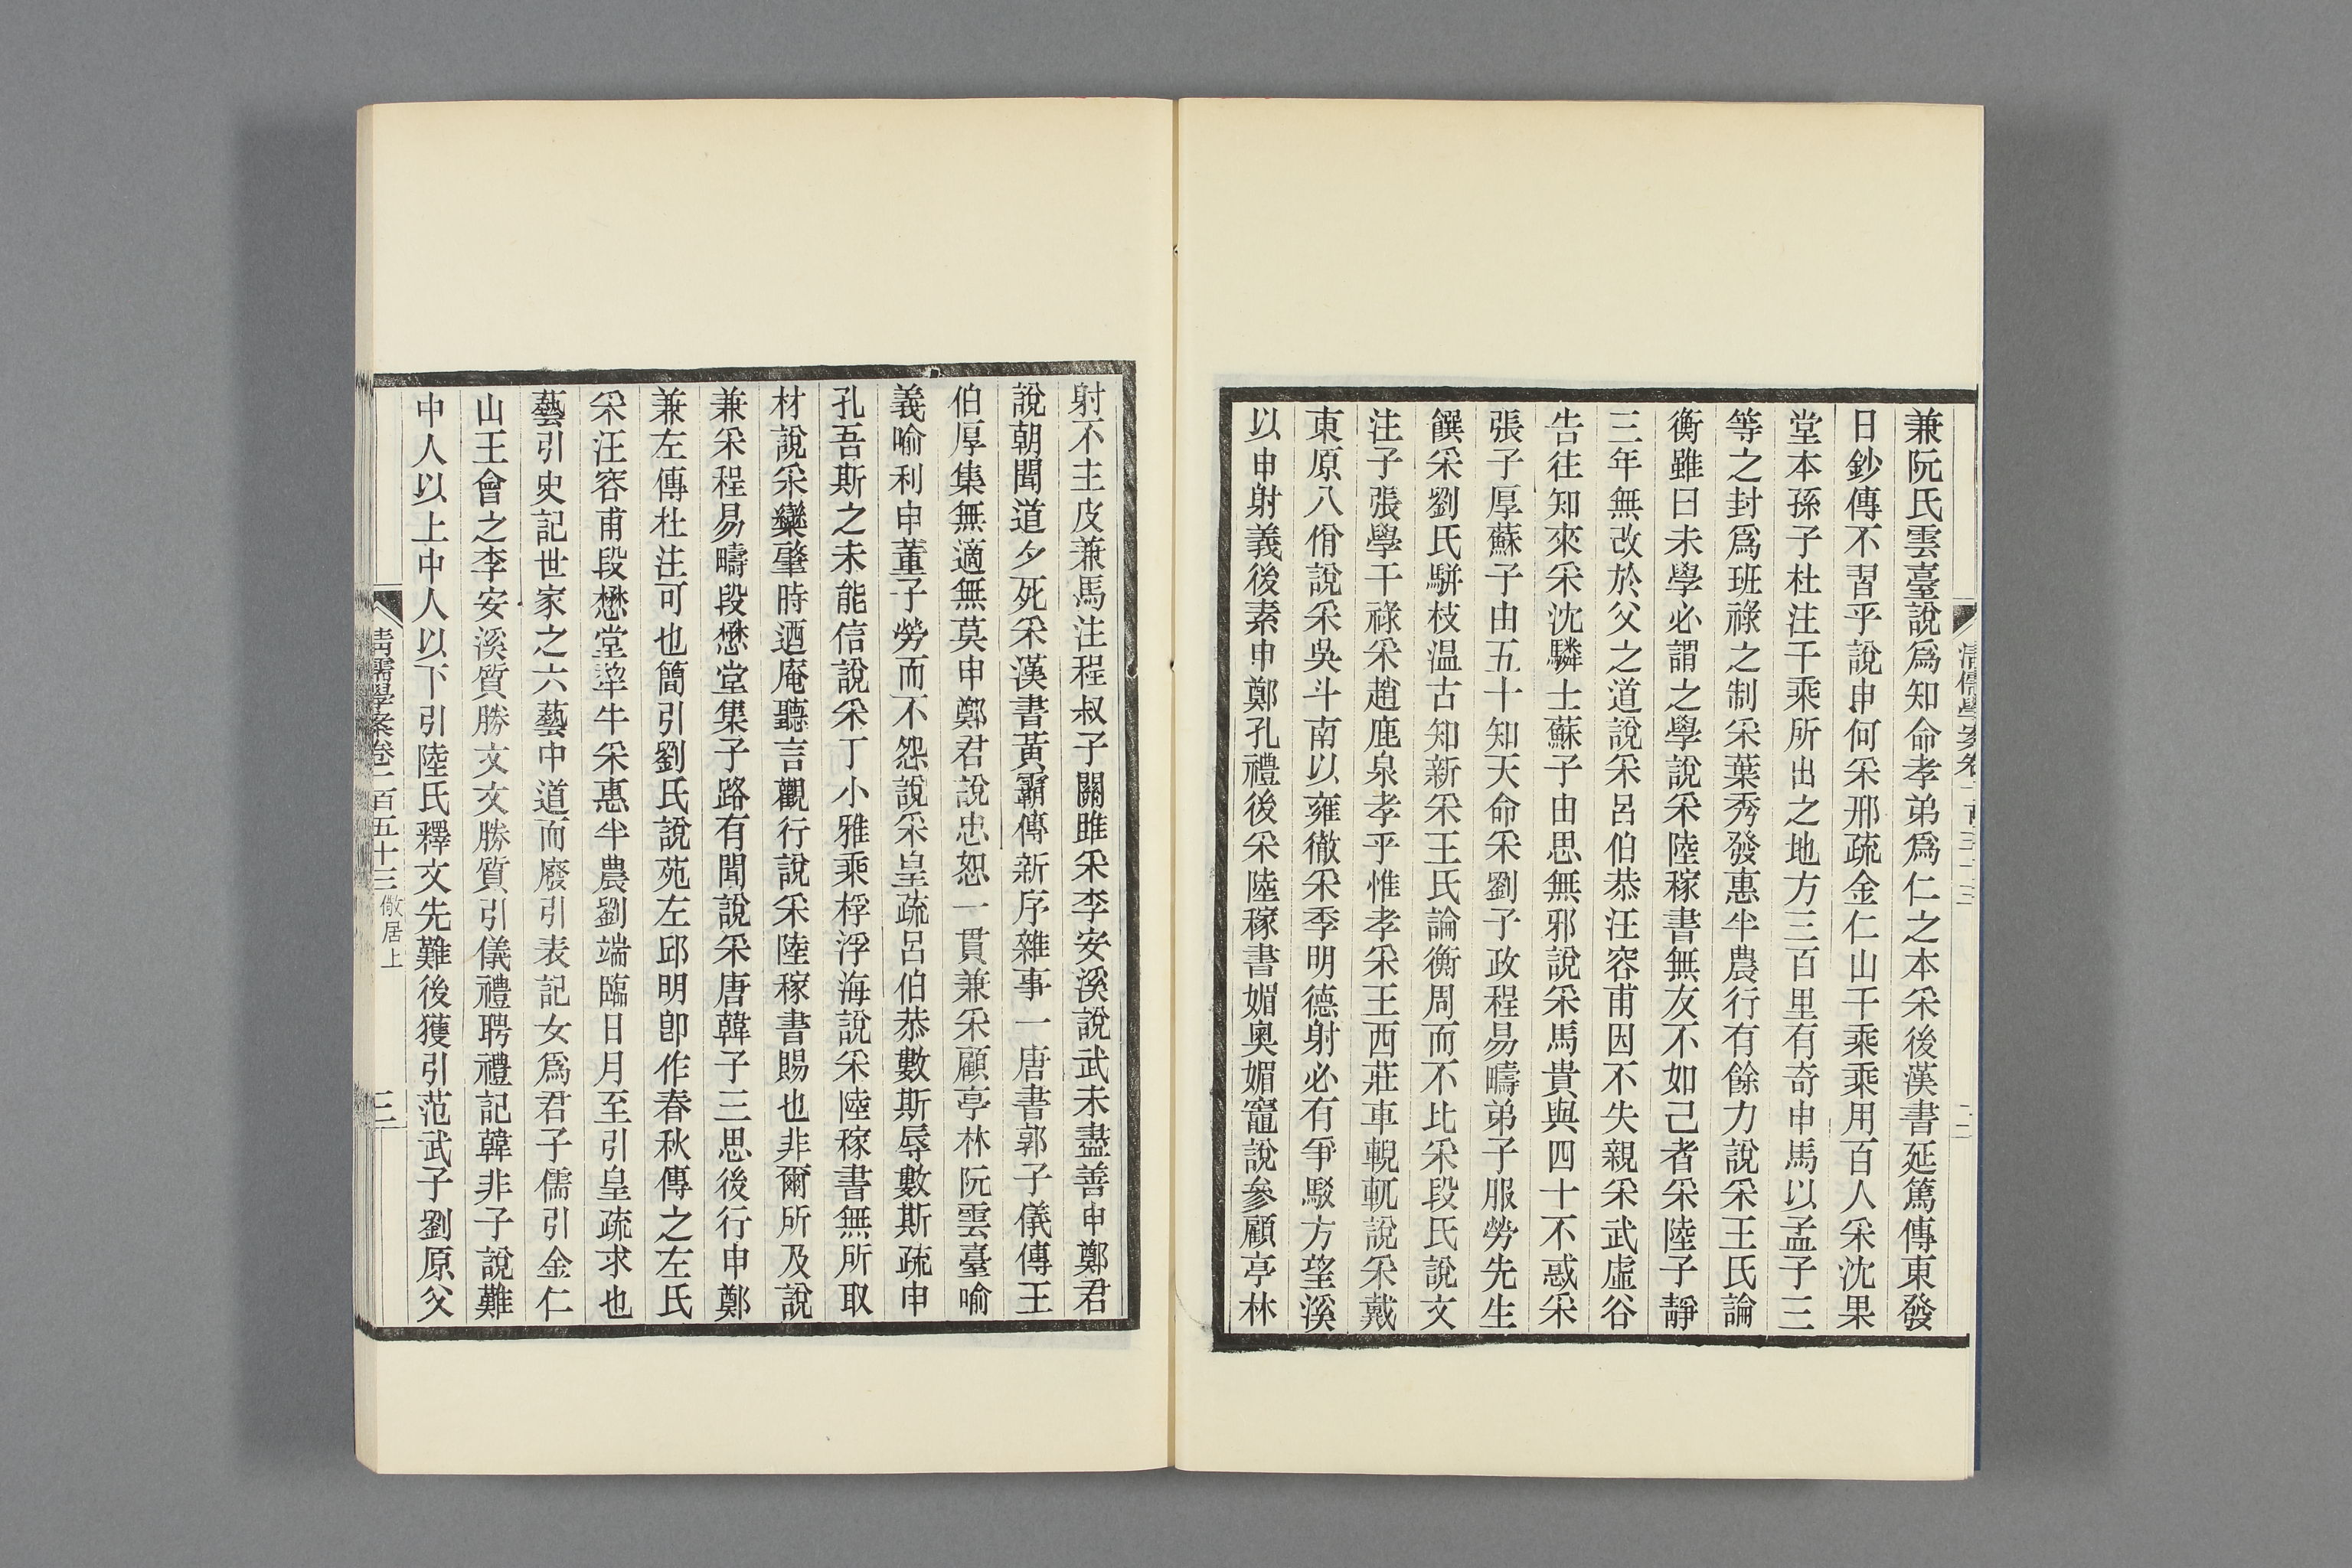 兼阮氏雲臺說爲知命孝弟爲仁之本采後漢書延篤傳東發
日鈔傳不習乎說申何采邢疏金仁山千乘乘用百人采沈果
堂本孫子杜注千乘所出之地方三百里有奇申馬以孟子三
等之封爲班祿之制采葉秀發惠半農行有餘力說采王氏論
衡雖曰未學必謂之學說采陸稼書無友不如己者采陸子靜
三年無改於父之道說采呂伯恭汪容甫因不失親采武虛谷
告往知來采沈驎士蘇子由思無邪說采馬貴與四十不惑采
張子厚蘇子由五十知天命采劉子政程易疇弟子服勞先生
饌采劉氏駢枝温古知新采王氏論衡周而不比采段氏說文
注子張學干祿采趙鹿泉孝乎惟孝采王西莊車輗軏說采戴
東原八佾說采吳斗南以雍徹采季明德射必有爭駁方望溪
以申射義後素申鄭孔禮後采陸稼書媚奧媚竈說參顧亭林
射不主皮兼馬注程叔子關雎采李安溪說武未盡善申鄭君
說朝聞道夕死采漢書黃霸傳新序雜事一唐書郭子儀傳王
伯厚集無適無莫申鄭君說忠恕一貫兼采顧亭林阮雲臺喻
義喻利申董子勞而不怨說采皇疏呂伯恭數斯辱數斯疏申
孔吾斯之未能信說采丁小雅乘桴浮海說采陸稼書無所取
材說采欒肇時迺庵聽言觀行說采陸稼書賜也非爾所及說
兼采程易疇段懋堂集子路有聞說采唐韓子三思後行申鄭
兼左傳杜注可也簡引劉氏說苑左邱明卽作春秋傳之左氏
采汪容甫段懋堂犂牛采惠半農劉端臨日月至引皇疏求也
藝引史記世家之六藝中道而廢引表記女爲君子儒引金仁
山王會之李安溪質勝文文勝質引儀禮聘禮記韓非子說難
中人以上中人以下引陸氏釋文先難後獲引范武子劉原父
清儒學案卷一百五十三 儆居上
三